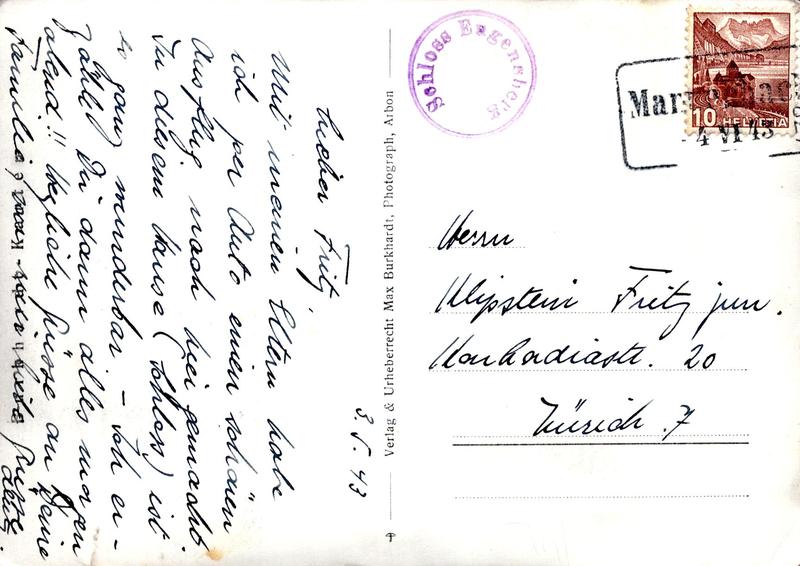 3. V. 43
Lieber Fritz,
Mit meinen Eltern habe
ich per Auto einen schönen
Ausflug nach hier gemacht
In diesem Hause (Schloss) ist
es ganz wunderbar – Ich er-
zähle Dir dann alles morgen
abend!! Herzliche Grüsse an Deine
Familie &
Grüsse
Verlag & Urheberrecht Max Burkhardt, Photograph, Arbon
Schloss Eugensberg
10 HELVETIA
-4 VI 43
Herrn
Klipstein Fritz jun.
20
Zürich 7